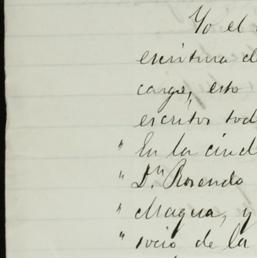 Yo el
escritura d
cargo, esto
escritos tod
" En la ciud
" Dn Rosendo
" Magua, y
" socio de la